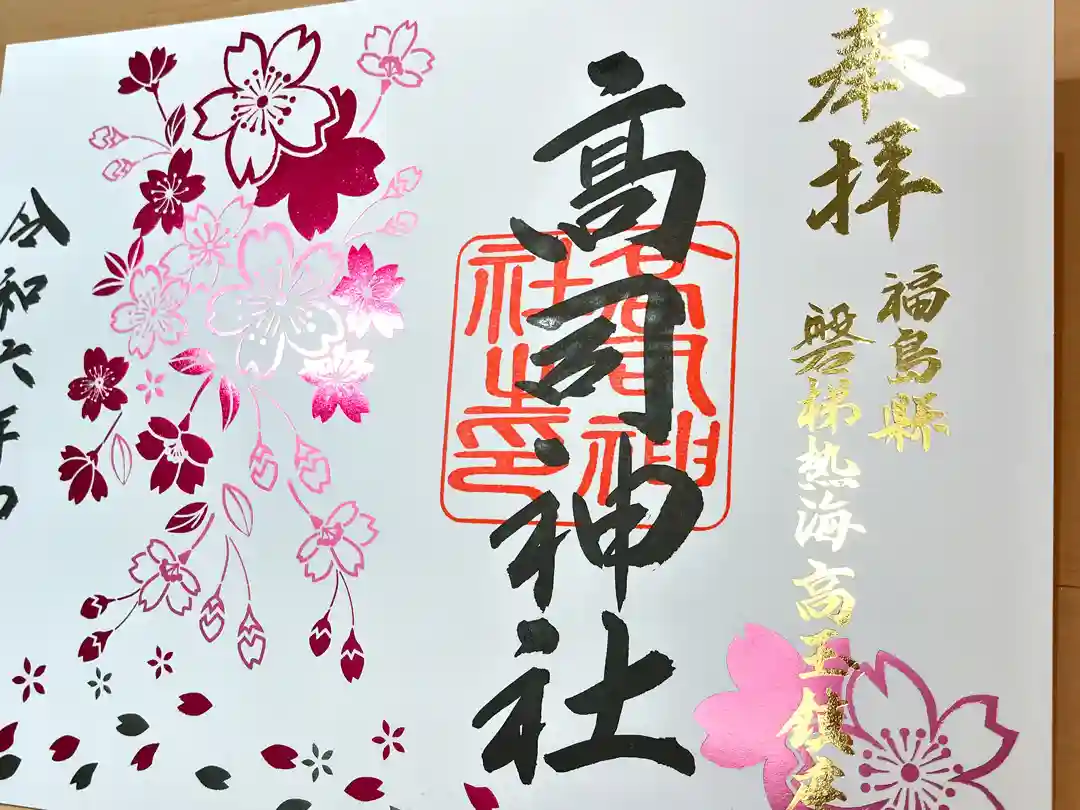 奉拝
福島縣
磐梯熱海高玉鎮座
高司神社
高司神社之印
令和六年